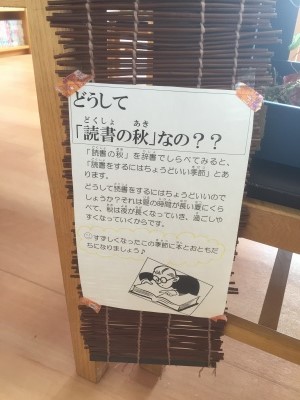 どうして
どくしょ あき
「読書の秋」なの？？
「読書の秋」を辞書でしらべてみると、
「読書をするにはちょうどいい季節」とあ
ります。
どうして読書をするにはちょうどいいので
しょうか？それは昼の時間が長い夏にくら
べて、秋は夜が長くなっていき、過ごしや
すくなっていくからです。
すずしくなったこの季節に本とおともだ
ちになりましょう♪